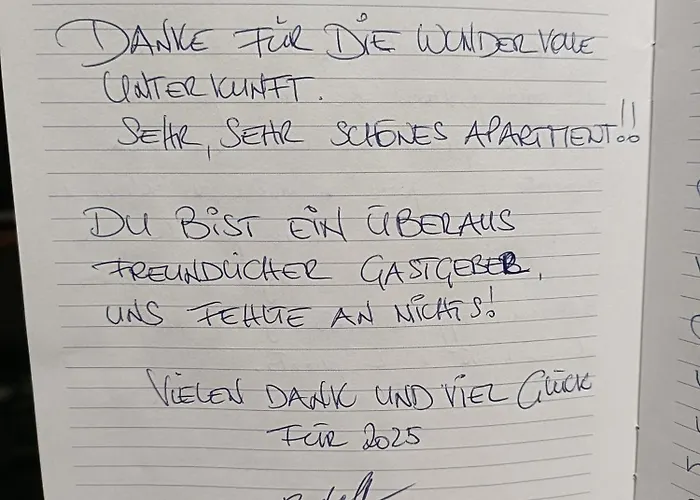 DANKE FÜR DIE WUNDERVOLLE
UNTERKUNFT.
SEHR, SEHR SCHÖNES APARTMENT!!
DU BIST EIN ÜBERAUS
FREUNDLICHER GASTGEBER,
UNS FEHLTE AN NICHTS!
VIELEN DANK UND VIEL GLÜCK
FÜR 2025